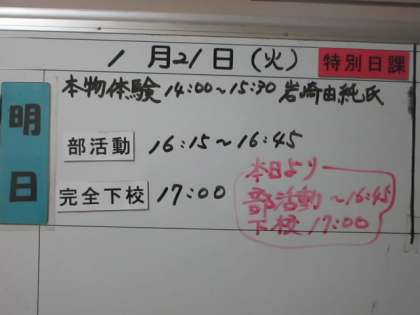 1月21日(火) 特別日課
明日
本物体験 14:00~15:30 岩崎由純氏
部活動 16:15~16:45
完全下校 17:00
本日より
部活動~16:45
下校 17:00